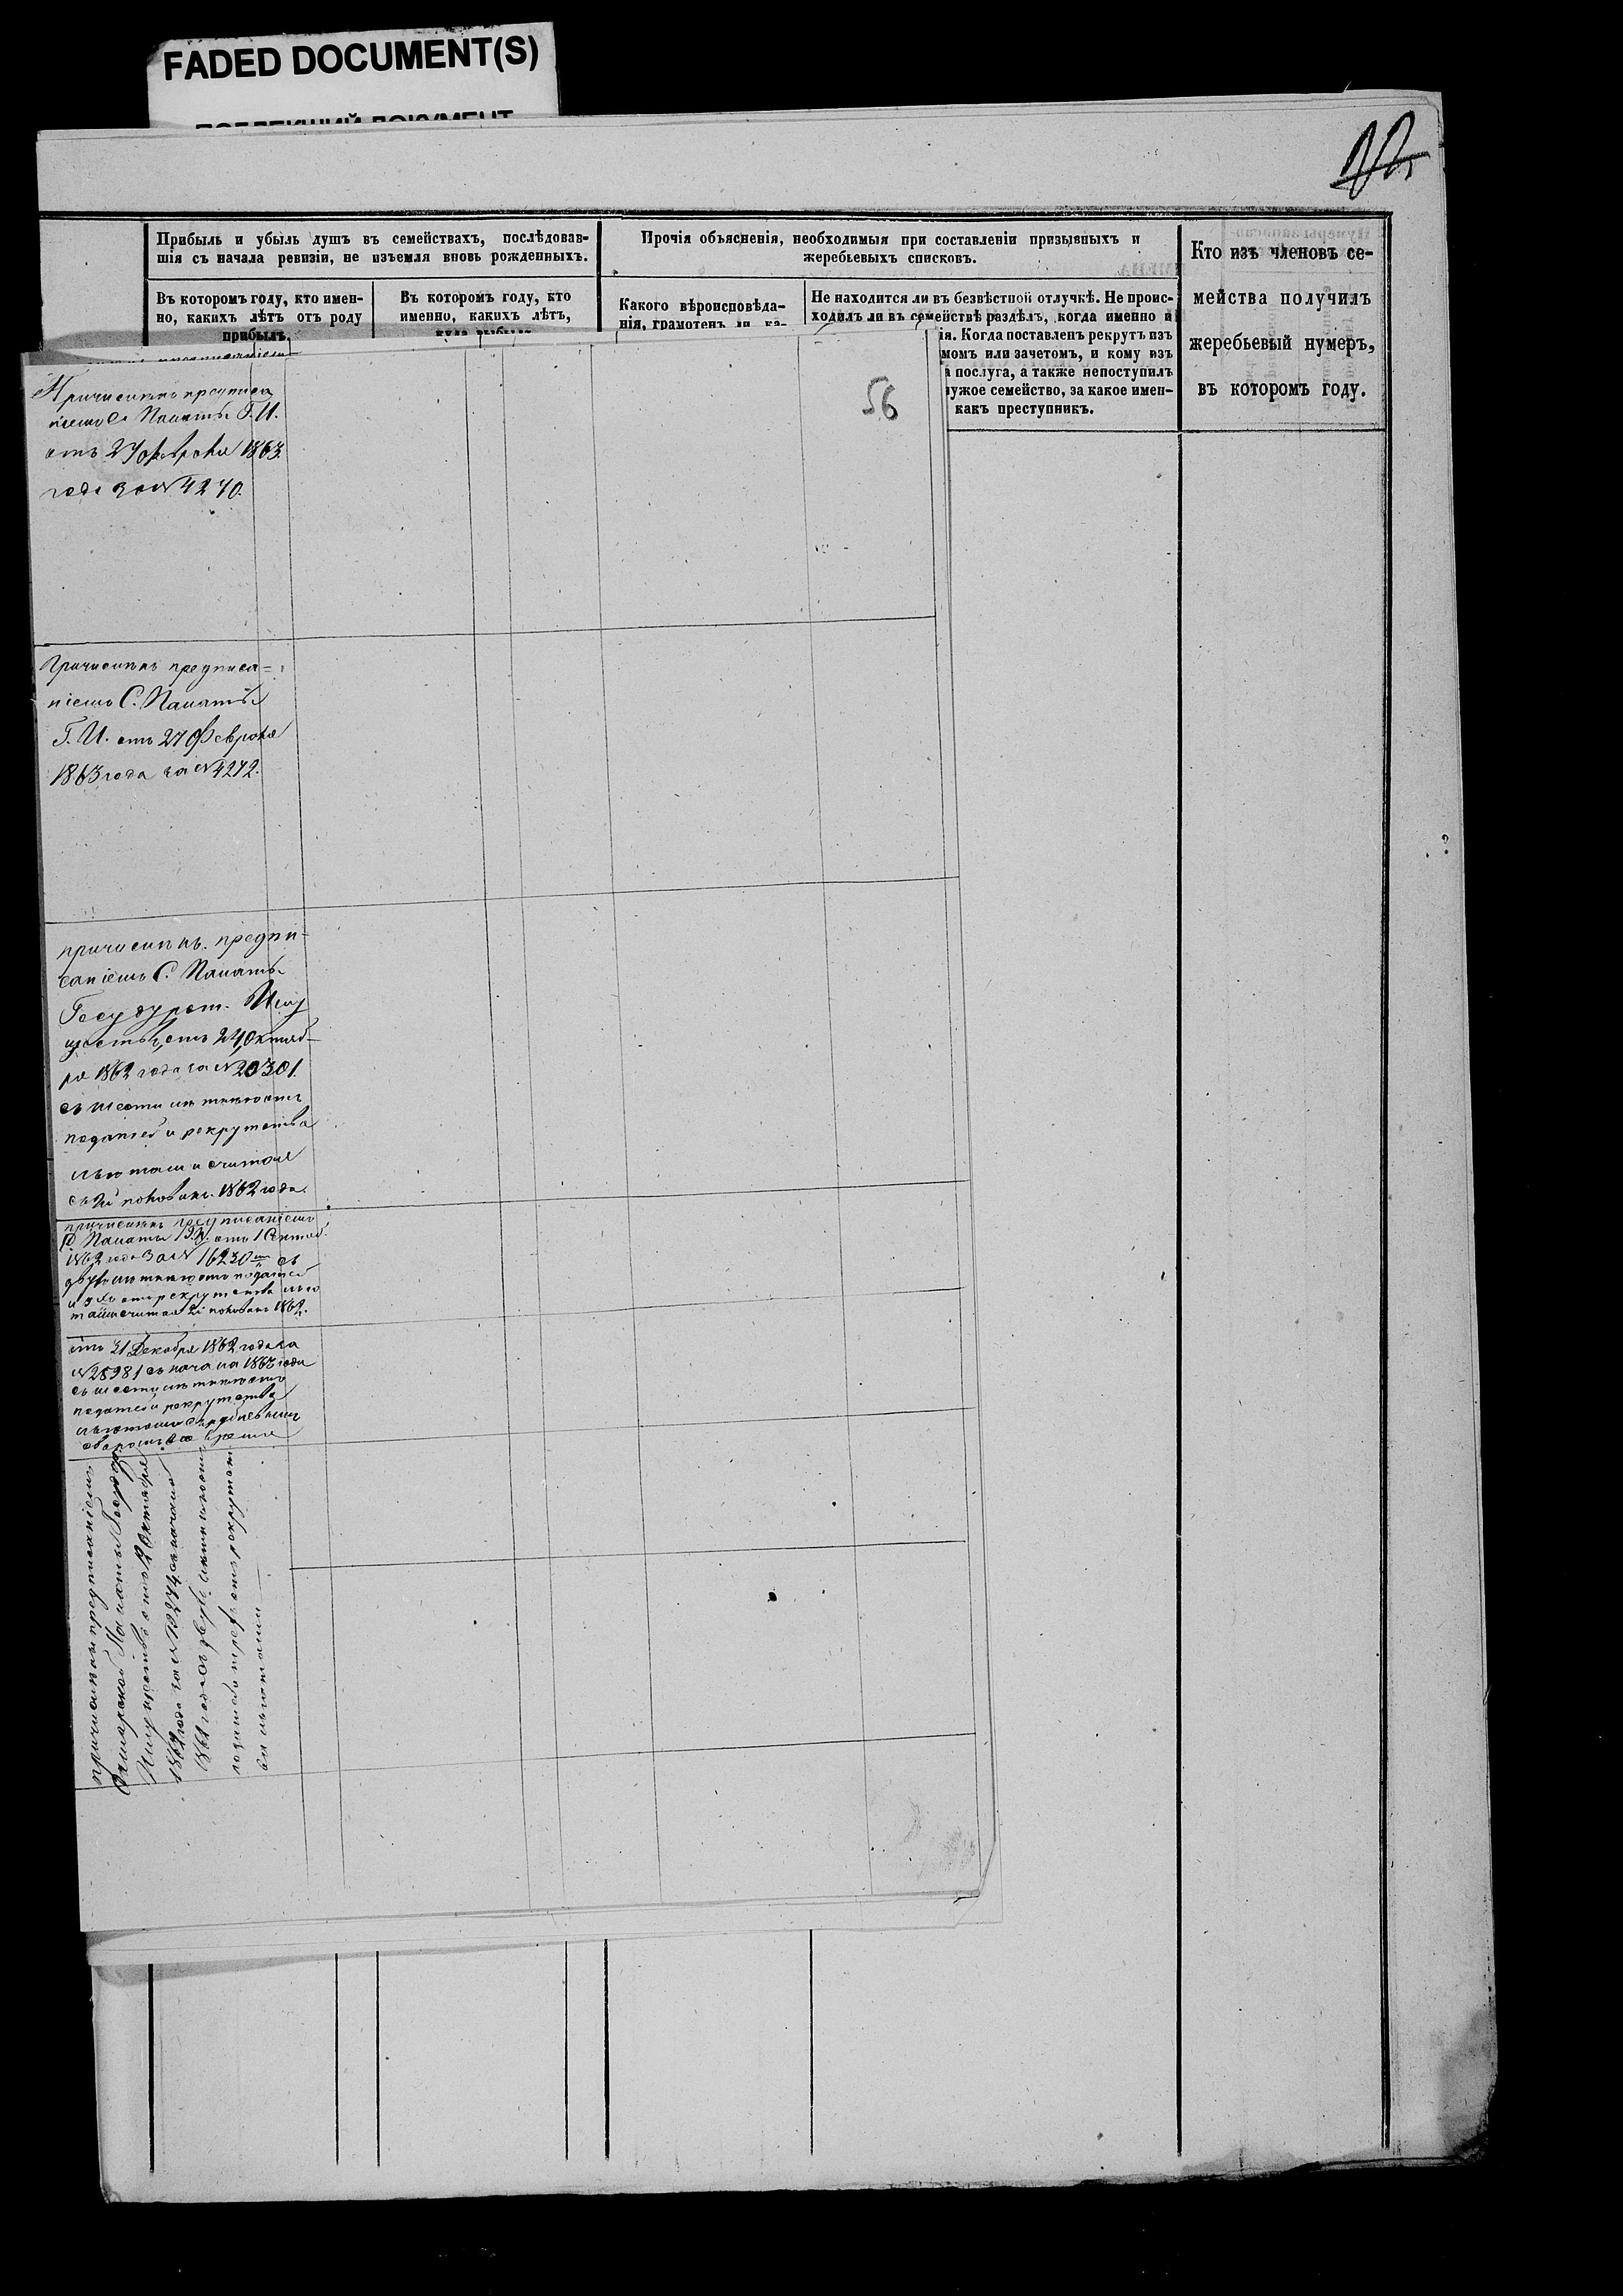 FADED DOCUMENT(S)
Прибыль и убыль душъ въ семействахъ, послѣдовав-
шія съ начала ревизіи, не изъемля вновь рожденныхъ.
Въ которомъ году, кто имен-
но, какихъ лѣтъ отъ роду
прибылъ.
Въ которомъ году, кто
именно, какихъ лѣтъ,
Прочія объясненія, необходимыя при составленіи призывныхъ и
жеребьевыхъ списковъ.
Какого вѣроисповѣда-
нія, грамотенъ ли, ка-
Не находится ли въ безвѣстной отлучкѣ. Не проис-
ходилъ ли въ семействѣ раздѣлъ, когда именно и
ія. Когда поставленъ рекрутъ изъ
момъ или зачетомъ, и кому изъ
а послуга, а также непоступилъ
ужое семейство, за какое имен-
какъ преступникъ.
Кто изъ членовъ се-
мейства получилъ
жеребьевый нумеръ,
въ которомъ году.
56
Причисленъ предписа
ніемъ С. Палаты Г. И.
отъ 27 февраля 1863
года за № 4270.
Причисленъ предписа=
ніемъ С. Палаты
Г. И. отъ 27 Февраля
1863 года за № 4272.
причисленъ предпи-
саніемъ С. Палаты
Государст. Иму
ществъ, отъ 24 Октяб-
ря 1862 года за № 20301.
съ шести лѣтнею отъ
податей и рекрутства
льготами считая
съ 2й половин. 1862 года.
причисленъ предписаніемъ
Палаты Г. И. отъ 1 Октяб.
1862 года За № 16230 съ
податей
рекрутства льго
считая 2й половин 1862.
отъ 31 Декабря 1862 года за
№ 25981 съ начала 1863 года
съ шести лѣтнею отъ
податей и рекрутства
льготами
время
причисленъ предписаніемъ
Самарской Палаты Государ.
Имуществъ отъ 12 Октября
1862 года за № 19274, съ начала
1861 года съ лѣтнею отъ
податей и отъ рекрутст
ва льготами